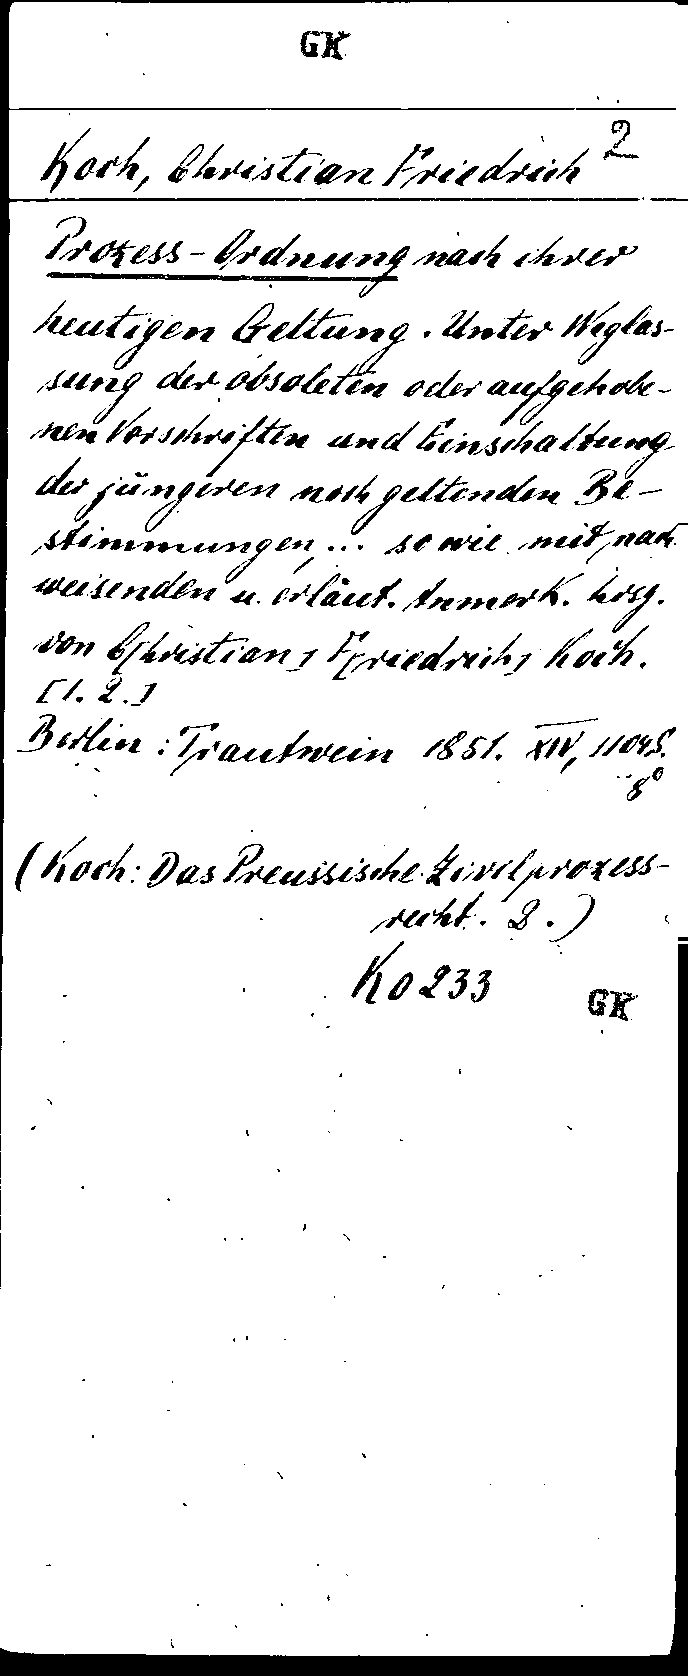 GK
2
Koch, Christian Friedrich
Prozess-Ordnung nach ihrer
heutigen Geltung. Unter Weglas-
sung der obsoleten oder aufgehobe-
nen Vorschriften und Einschaltung
der jüngeren noch geltenden Be-
stimmungen, ... so wie mit nach
weisenden u. erläut. Anmerk. hrsg.
von C[hristian] F[riedrich] Koch.
[1. 2.]
Berlin: Trautwein 1851. XIV, 1104 S.
8°
(Koch: Das Preussische Zivilprozess-
recht. 2.)
Ko 233
GK